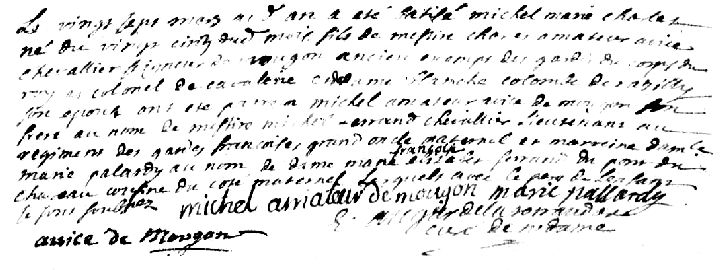 Le vingt sept mars au d an a eté batisé michel marie charles
né du vingt cinq dud mois fils de messire charles amateur avice
chevallier seigneur de mougon ancien exempt des gardes du corps du
roy et colonel de cavalerie et dame blanche colombe de razilly
son epouse ont eté parrain michel amateur avice de mougon son
frere au nom de messire michel ferrand chevallier lieutenant au
regiment des gardes francoises grand oncle maternel et marreine dam
marie palardy au nom de dame marie françoise ferrand du pont du
chateau cousine du coté maternel lesquels avec le pere de l'enfant
se sont soussignes
michel amateur de mougon marie pallardy
avice de Mougon
curé de